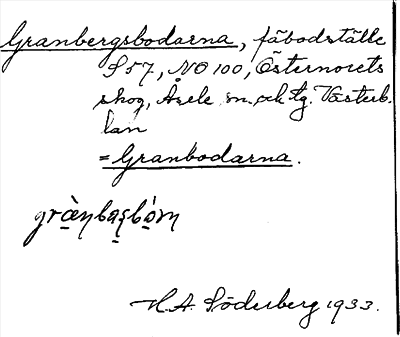 Granbergsbodarna, fäbodställe
S 57, NO 100, Östernorets
skog, Åsele sn. och tg. Västerb.
län
= Granbodarna.
H.A. Söderberg 1933.